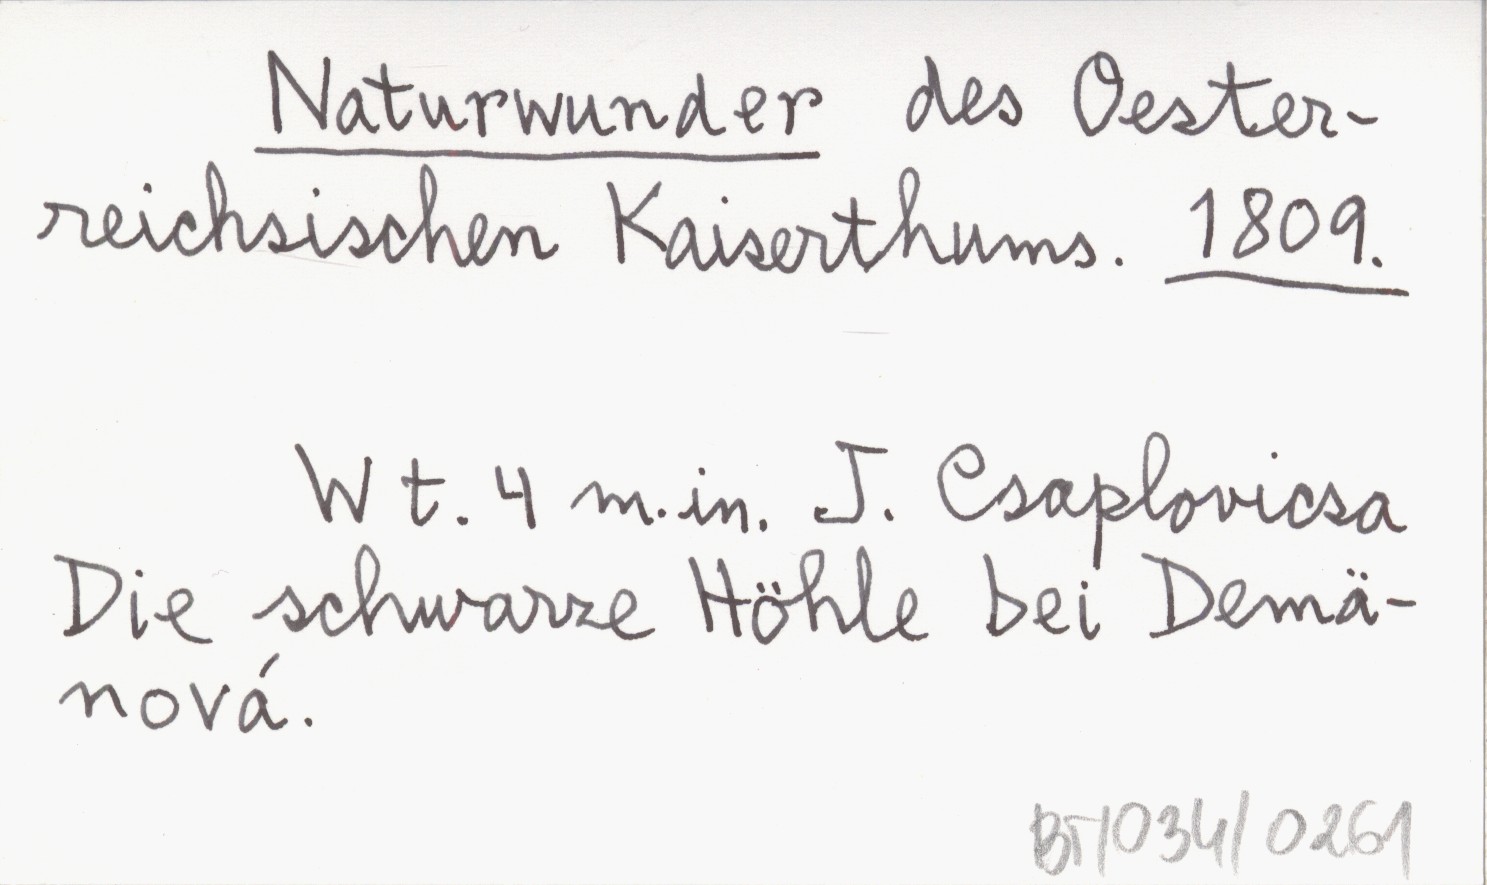 Naturwunder des Oester-
reichsischen Kaiserthums. 1809.
W t. 4 m.in. J. Csaplovicsa
Die schwarze Höhle bei Demä-
nová.
BT/034/0261